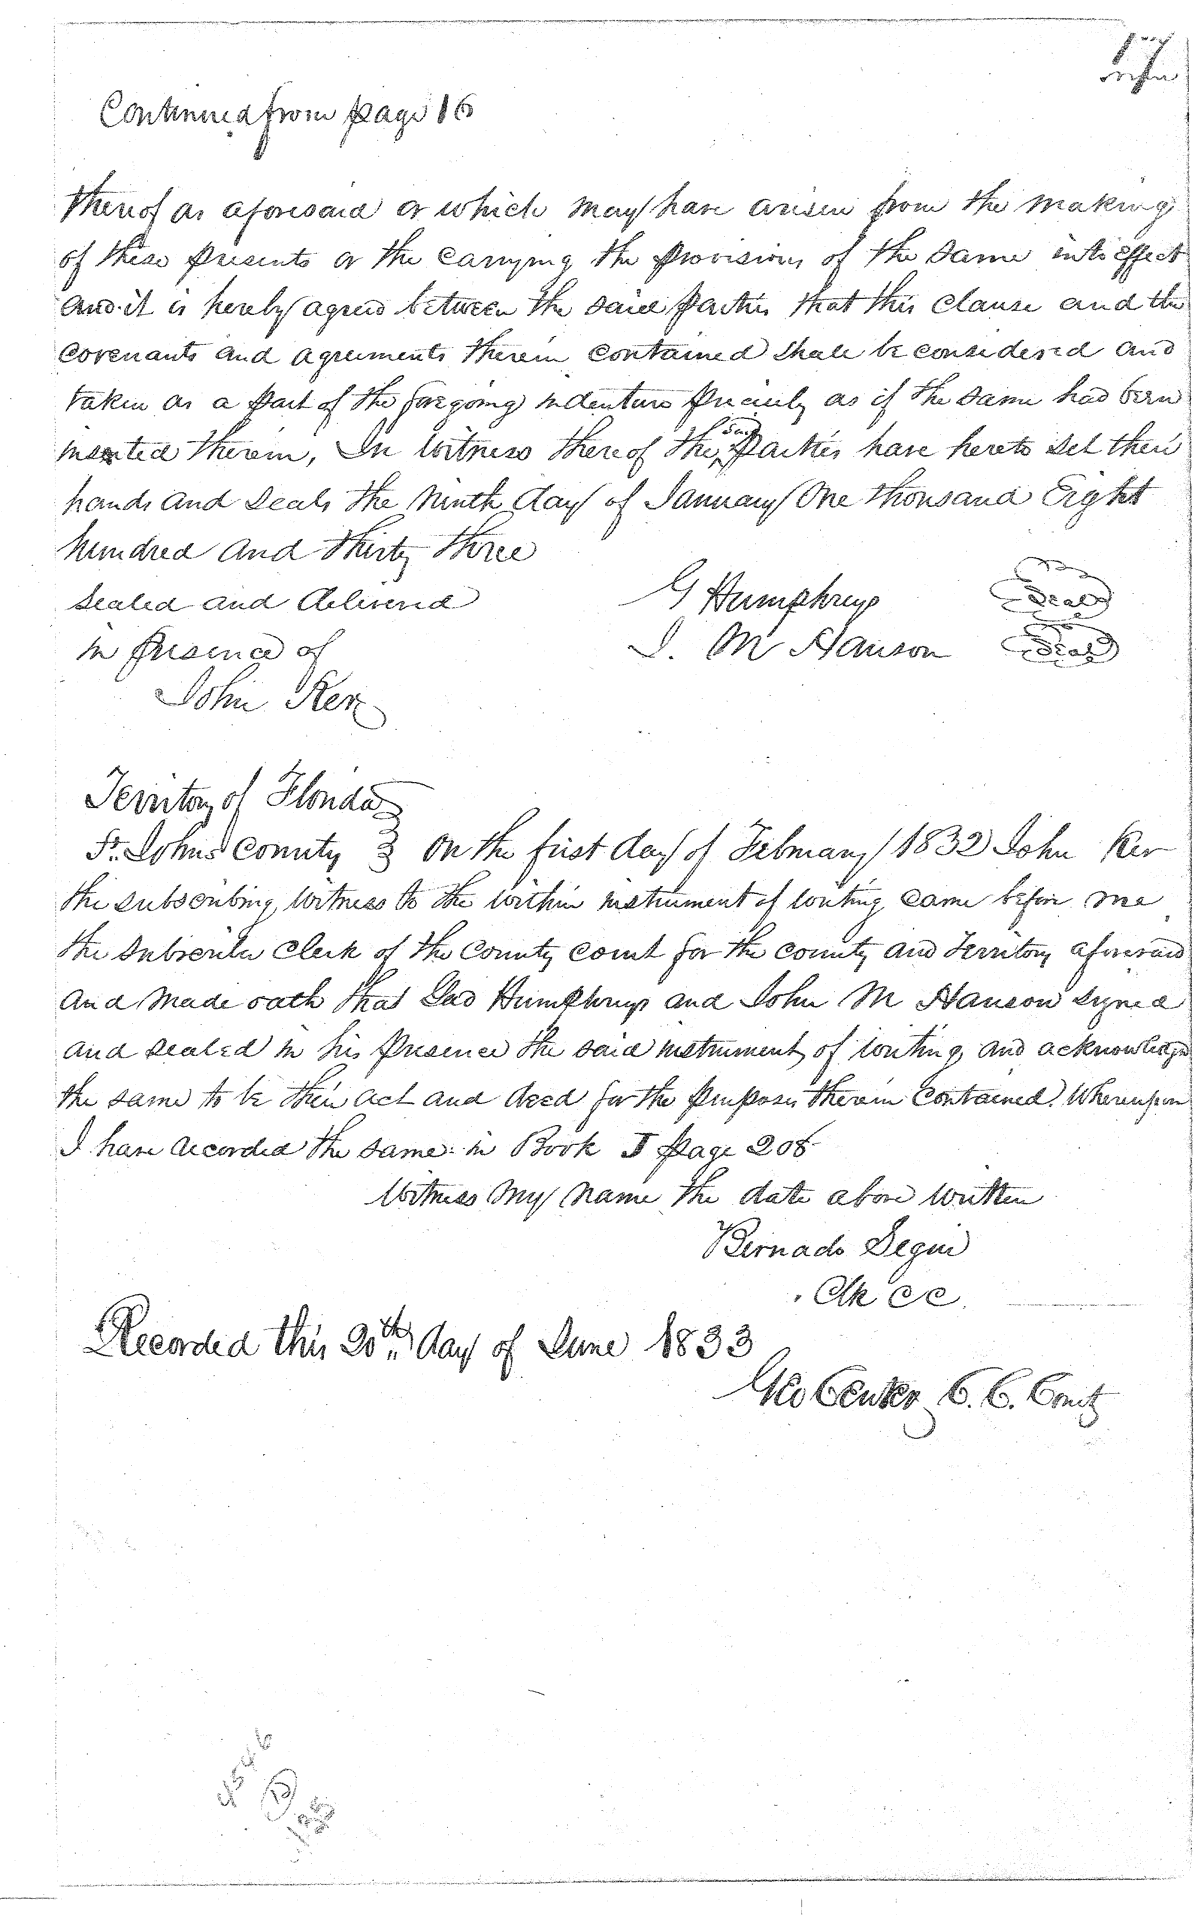 17
Continued from page 16
thereof as aforesaid or which may have arisen from the making
of these presents or the carrying the provisions of the same into effect
and it is hereby agreed between the said parties that this clause and the
covenants and agreements therein contained shall be considered and
taken as a part of the foregoing indenture precisely as if the same had been
inserted therein, In witness there of the said parties have hereto set their
hands and seals the ninth day of January One thousand Eight
hundred and thirty three
Sealed and delivered G Humphreys Seal
in presence of J. M Hanson Seal
John Ker
Territory of Florida
St. Johns County } On the first day of February 1832 John Ker
the subscribing witness to the within instrument of writing came before me
the subscriber Clerk of the County court for the county and Territory aforesaid
and made oath that Gad Humphreys and John M Hanson signed
and sealed in his presence the said instrument of writing and acknowledged
the same to be their act and deed for the purposes therein contained. Whereupon
I have recorded the same in Book J page 208
Witness my name the date above written
Bernado Segui
Clk CC
Recorded this 20th day of June 1833
Geo Center C. C. County